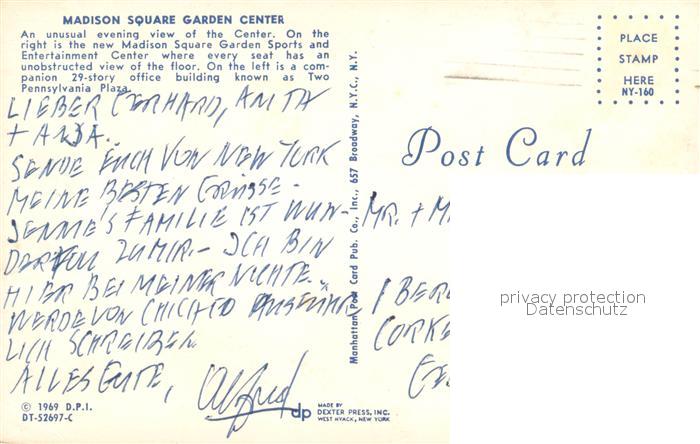 MADISON SQUARE GARDEN CENTER
An unusual evening view of the Center. On the
right is the new Madison Square Garden Sports and
Entertainment Center where every seat has an
unobstructed view of the floor. On the left is a com-
panion 29-story office building known as Two
Pennsylvania Plaza.
LIEBER GERHARD, ANITA
+ ANJA.
SENDE EUCH VON NEW YORK
MEINE BESTEN GRÜSSE -
JENNIE'S FAMILIE IST WUN-
DERVOLL ZU MIR. - ICH BIN
HIER BEI MEINER NICHTE.
WERDE VON CHICAGO AUSFÜHR
LICH SCHREIBEN
ALLES GUTE,
Alfred
© 1969 D.P.I.
DT-52697-C
dp
MADE BY
DEXTER PRESS, INC.
WEST NYACK, NEW YORK
Manhattan Post Card Pub. Co., Inc., 657 Broadway, N.Y.C., N.Y.
PLACE
STAMP
HERE
NY-160
Post Card
MR. + M
1 BER
privacy protection
Datenschutz